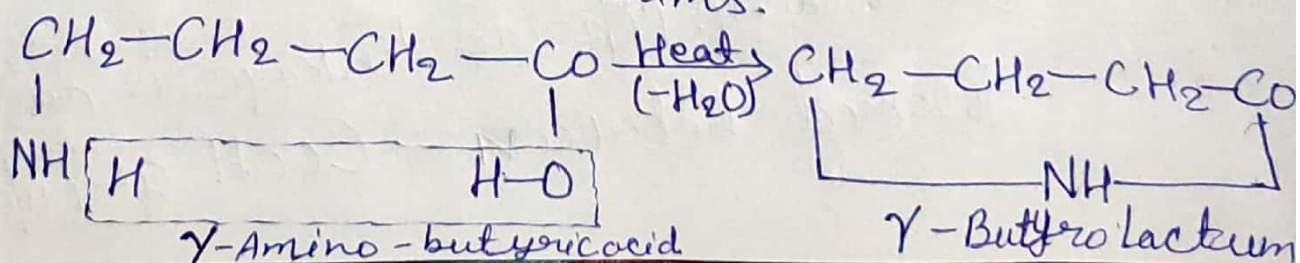 CH₂—CH₂—CH₂—CO Heat (-H₂O) CH₂—CH₂—CH₂—CO
NH H H—O NH
γ-Amino-butyric acid γ-Butyro Lactum